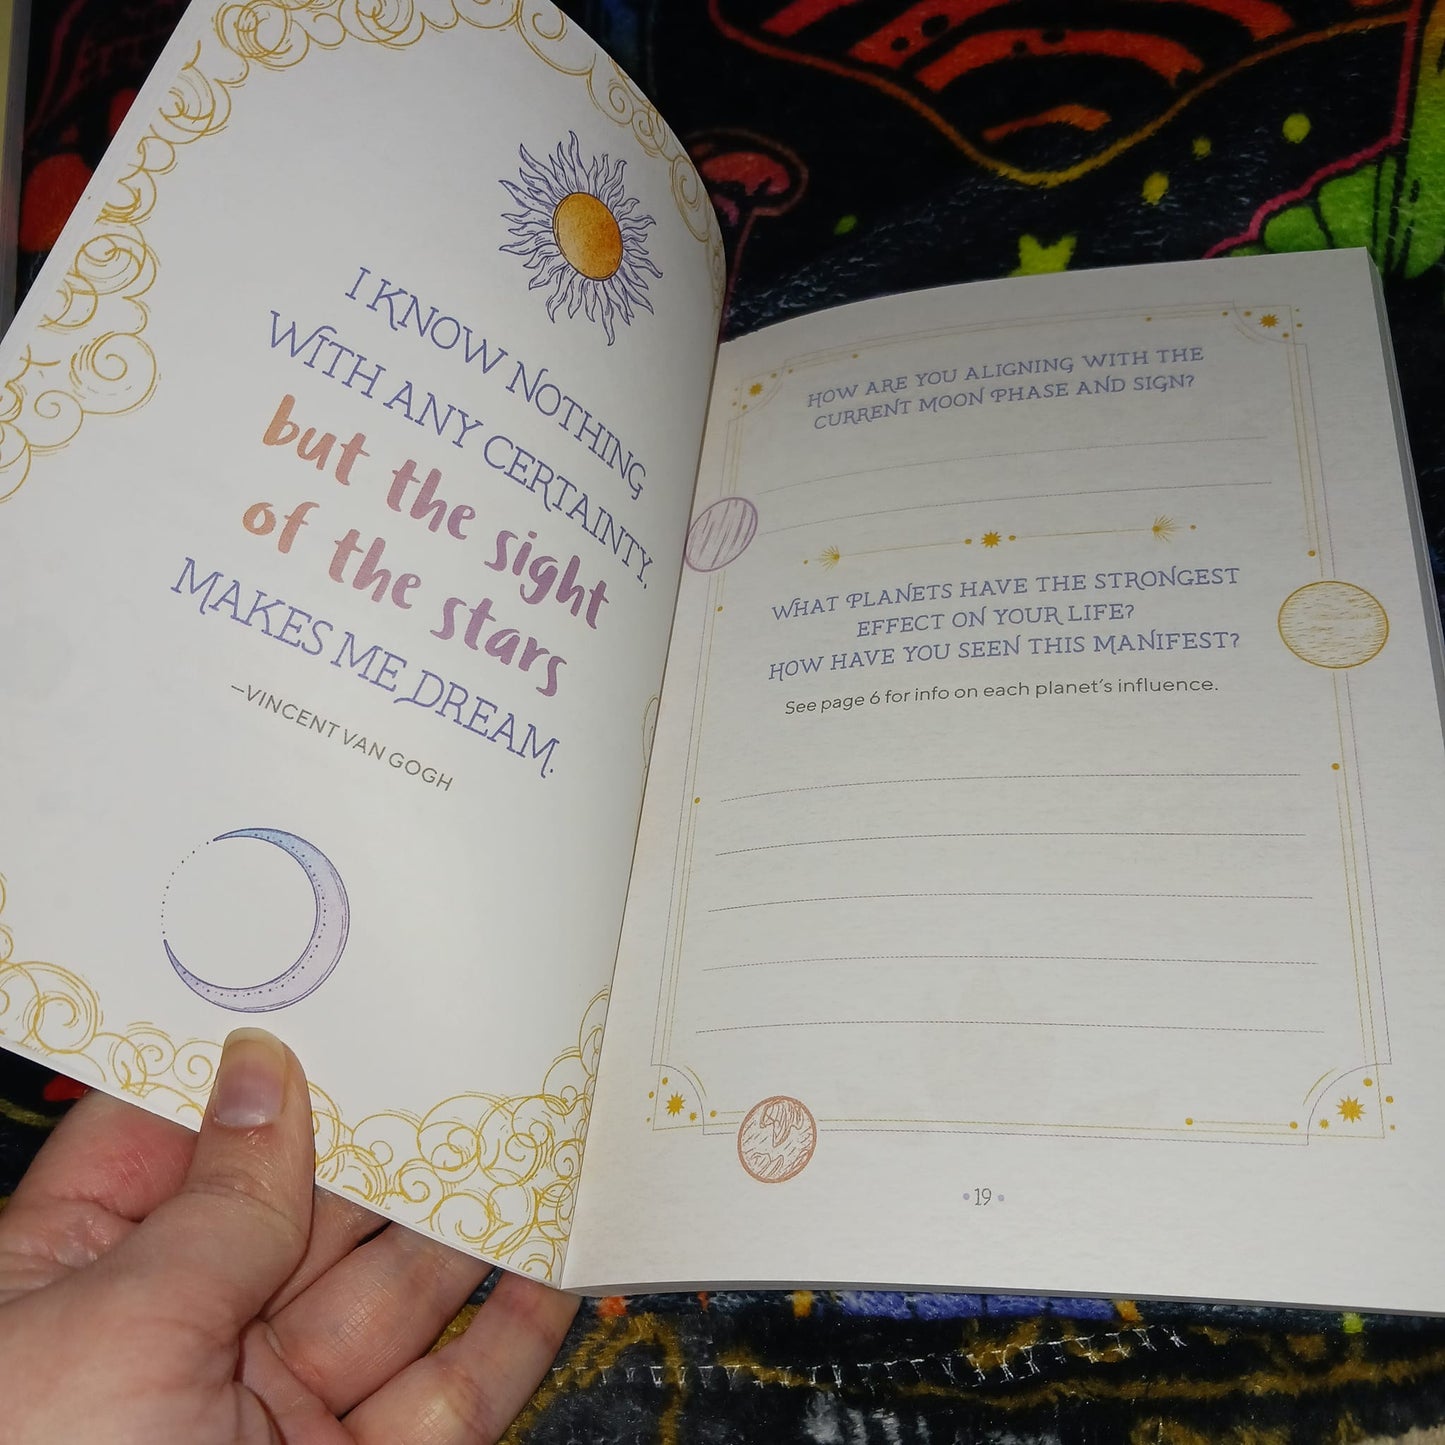 I KNOW NOTHING
WITH ANY CERTAINTY,
but the sight
of the stars
MAKES ME DREAM.
—VINCENT VAN GOGH
HOW ARE YOU ALIGNING WITH THE
CURRENT MOON PHASE AND SIGN?
WHAT PLANETS HAVE THE STRONGEST
EFFECT ON YOUR LIFE?
HOW HAVE YOU SEEN THIS MANIFEST?
See page 6 for info on each planet's influence.
• 19 •